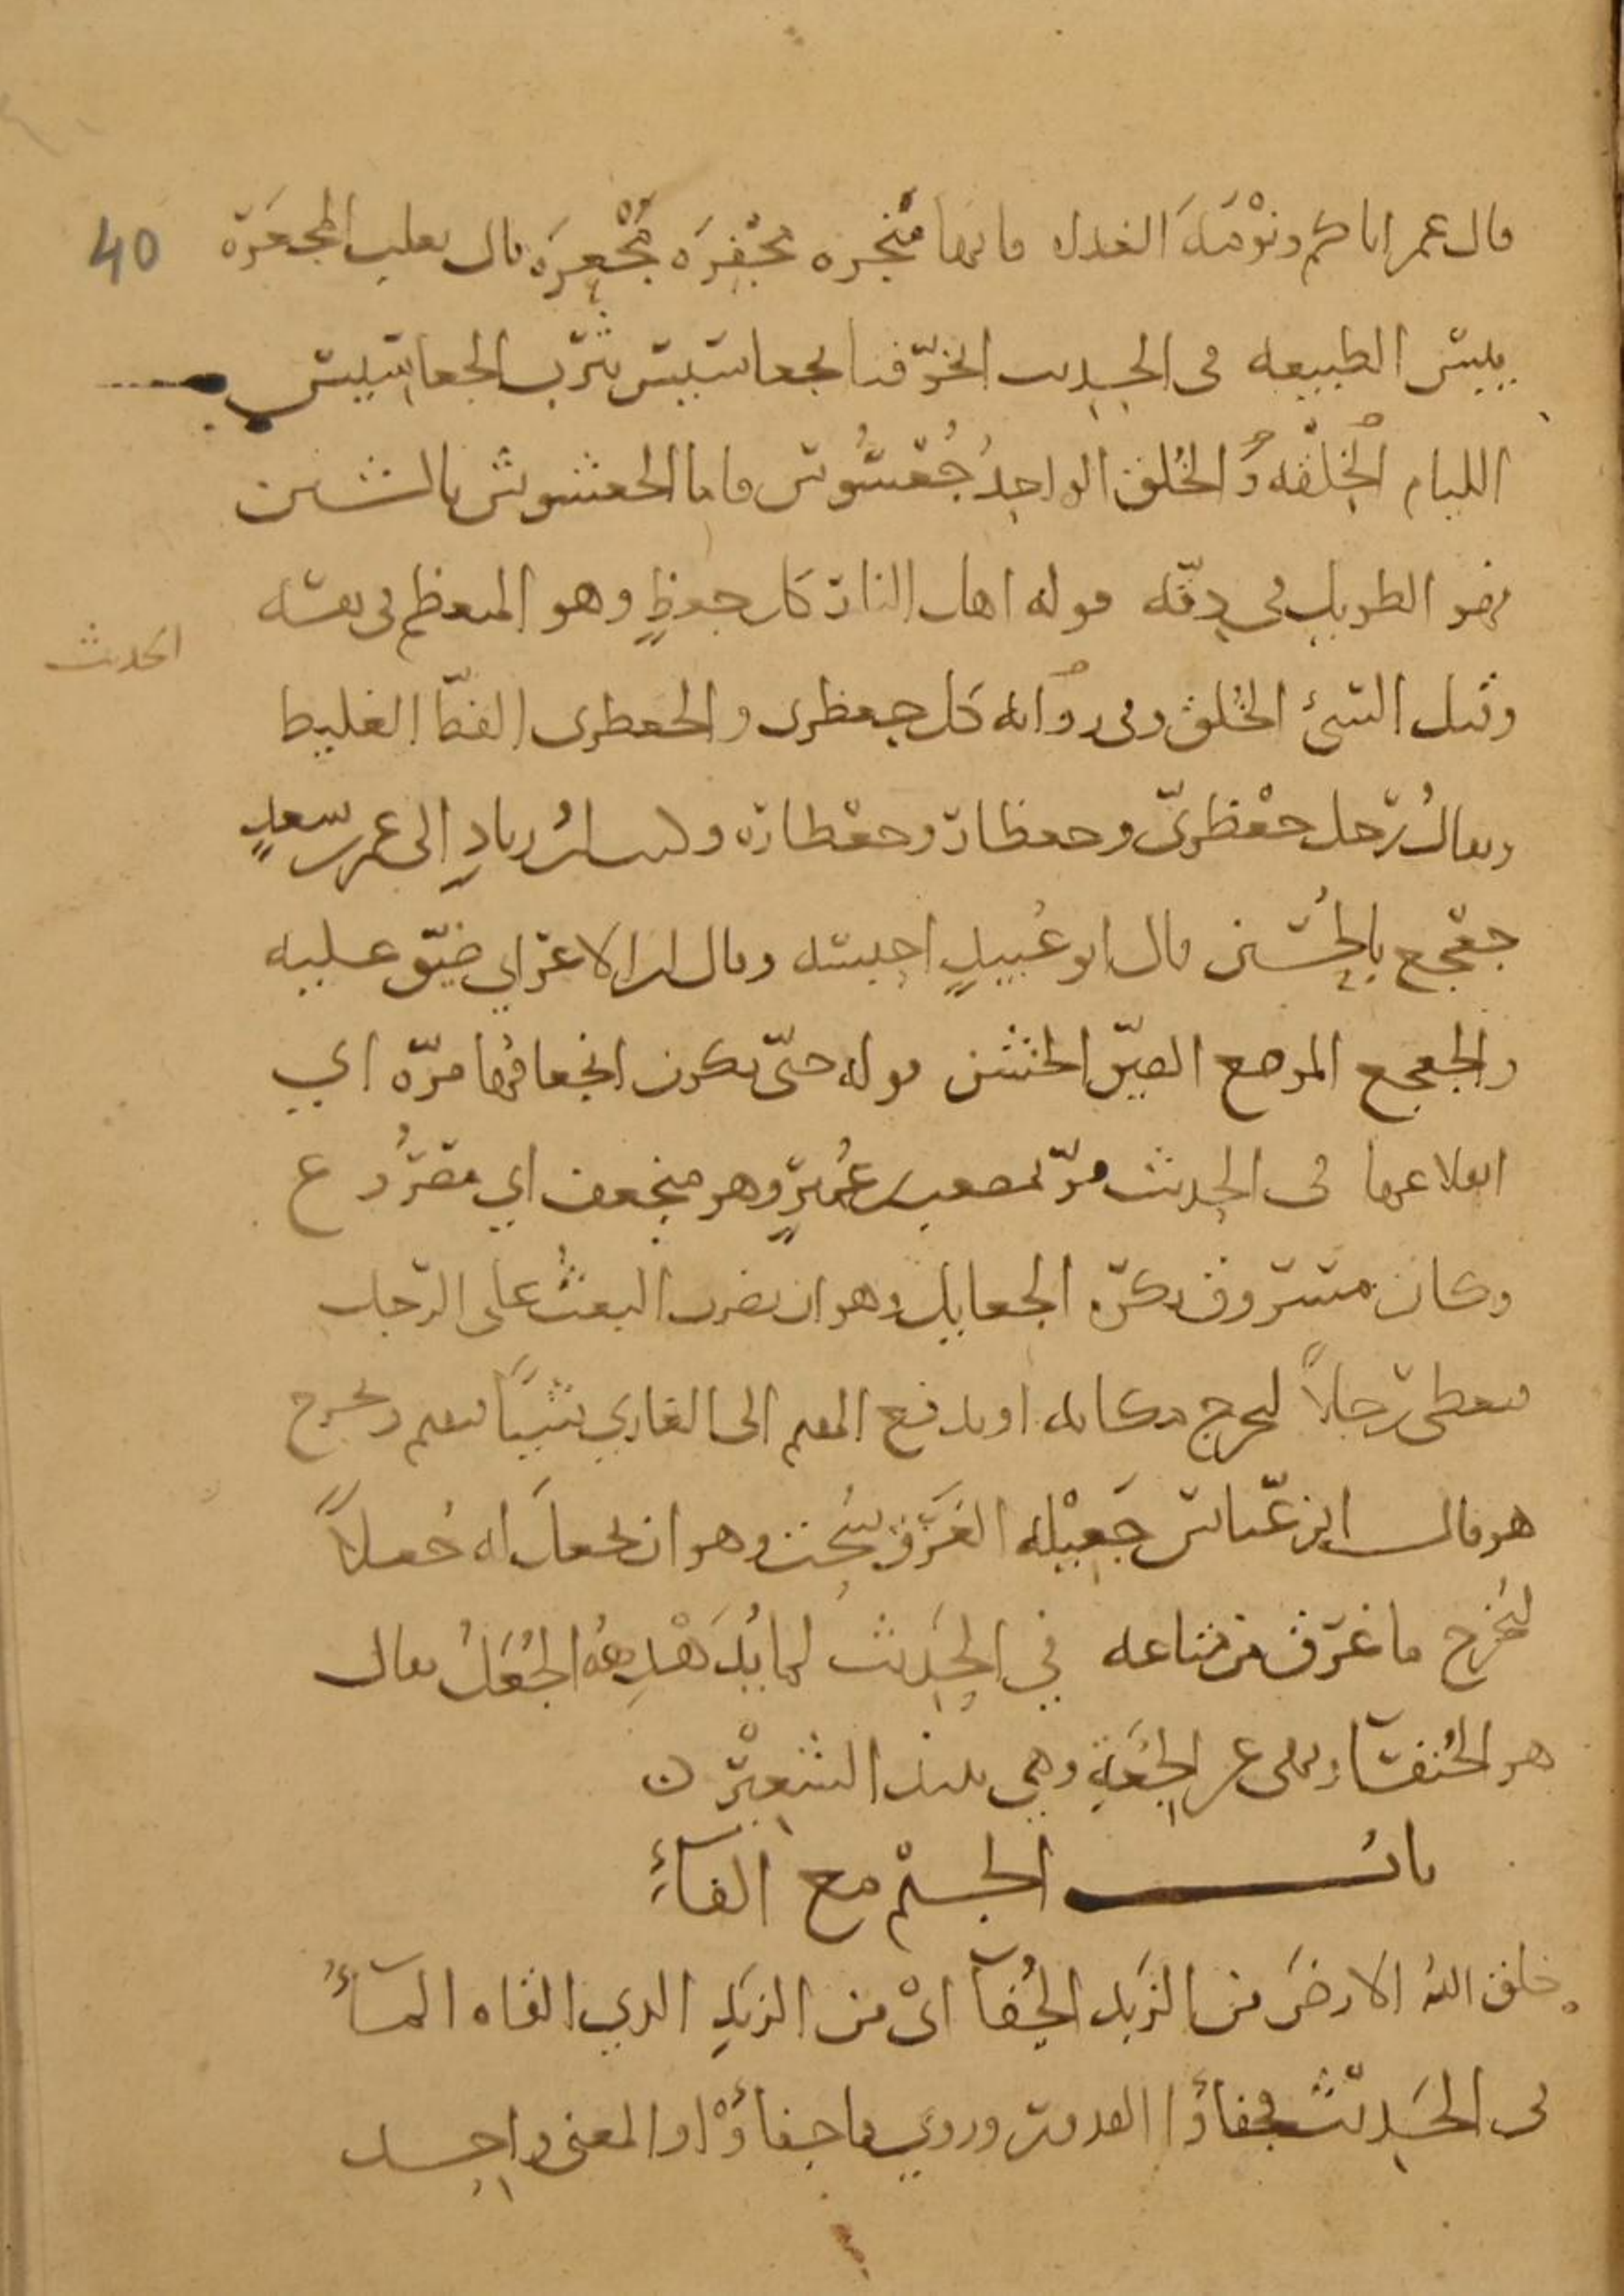 قال عمر اياكم ونومة الغداة فانها مبخرة مجفرة مجعرة قال ثعلب المجعرة
40
يبس الطبيعة في الحديث اتخوفنا بجعاسيس يثرب الجعاسيس
اللئام الخلقة والخلق الواحد جعسوس فاما الجعشوش بالشين
فهو الطويل في دقة قوله اهل النار كل جعظ وهو المتعظم في نفسه
الحديث
وقيل السيئ الخلق وفي رواية كل جعظري والجعظري الفظ الغليظ
ويقال رجل جعظري وجعظار وجعظارة وكتب ابن زياد الى عمر بن سعد
جعجع بالحسين قال ابو عبيد احبسه وقال ابن الاعرابي ضيق عليه
والجعجع الموضع الضيق الخشن قوله حتى يكون انجعافها مرة اي
انقلاعها في الحديث مر بمصعب بن عمير وهو منجعف اي مصروع
وكان مسروق يكره الجعايل وهو ان يضرب البعث على الرجل
فيعطي رجلا ليخرج مكانه او يدفع المقيم الى الغازي شيئا فيقيم ويخرج
هو قال ابن عباس جعيلة الغرق سحت وهو ان يجعل له جعلا
ليخرج ما غرق من متاعه في الحديث لما يدهده الجعل يقال
هو الخنفساء ونهى عن الجعة وهي نبيذ الشعير ن
باب الجيم مع الفاء
خلق الله الارض من الزبد الجفاء اي من الزبد الذي القاه الماء
في الحديث فجفاؤا القدور وروي فاجفاؤوا والمعنى واحد